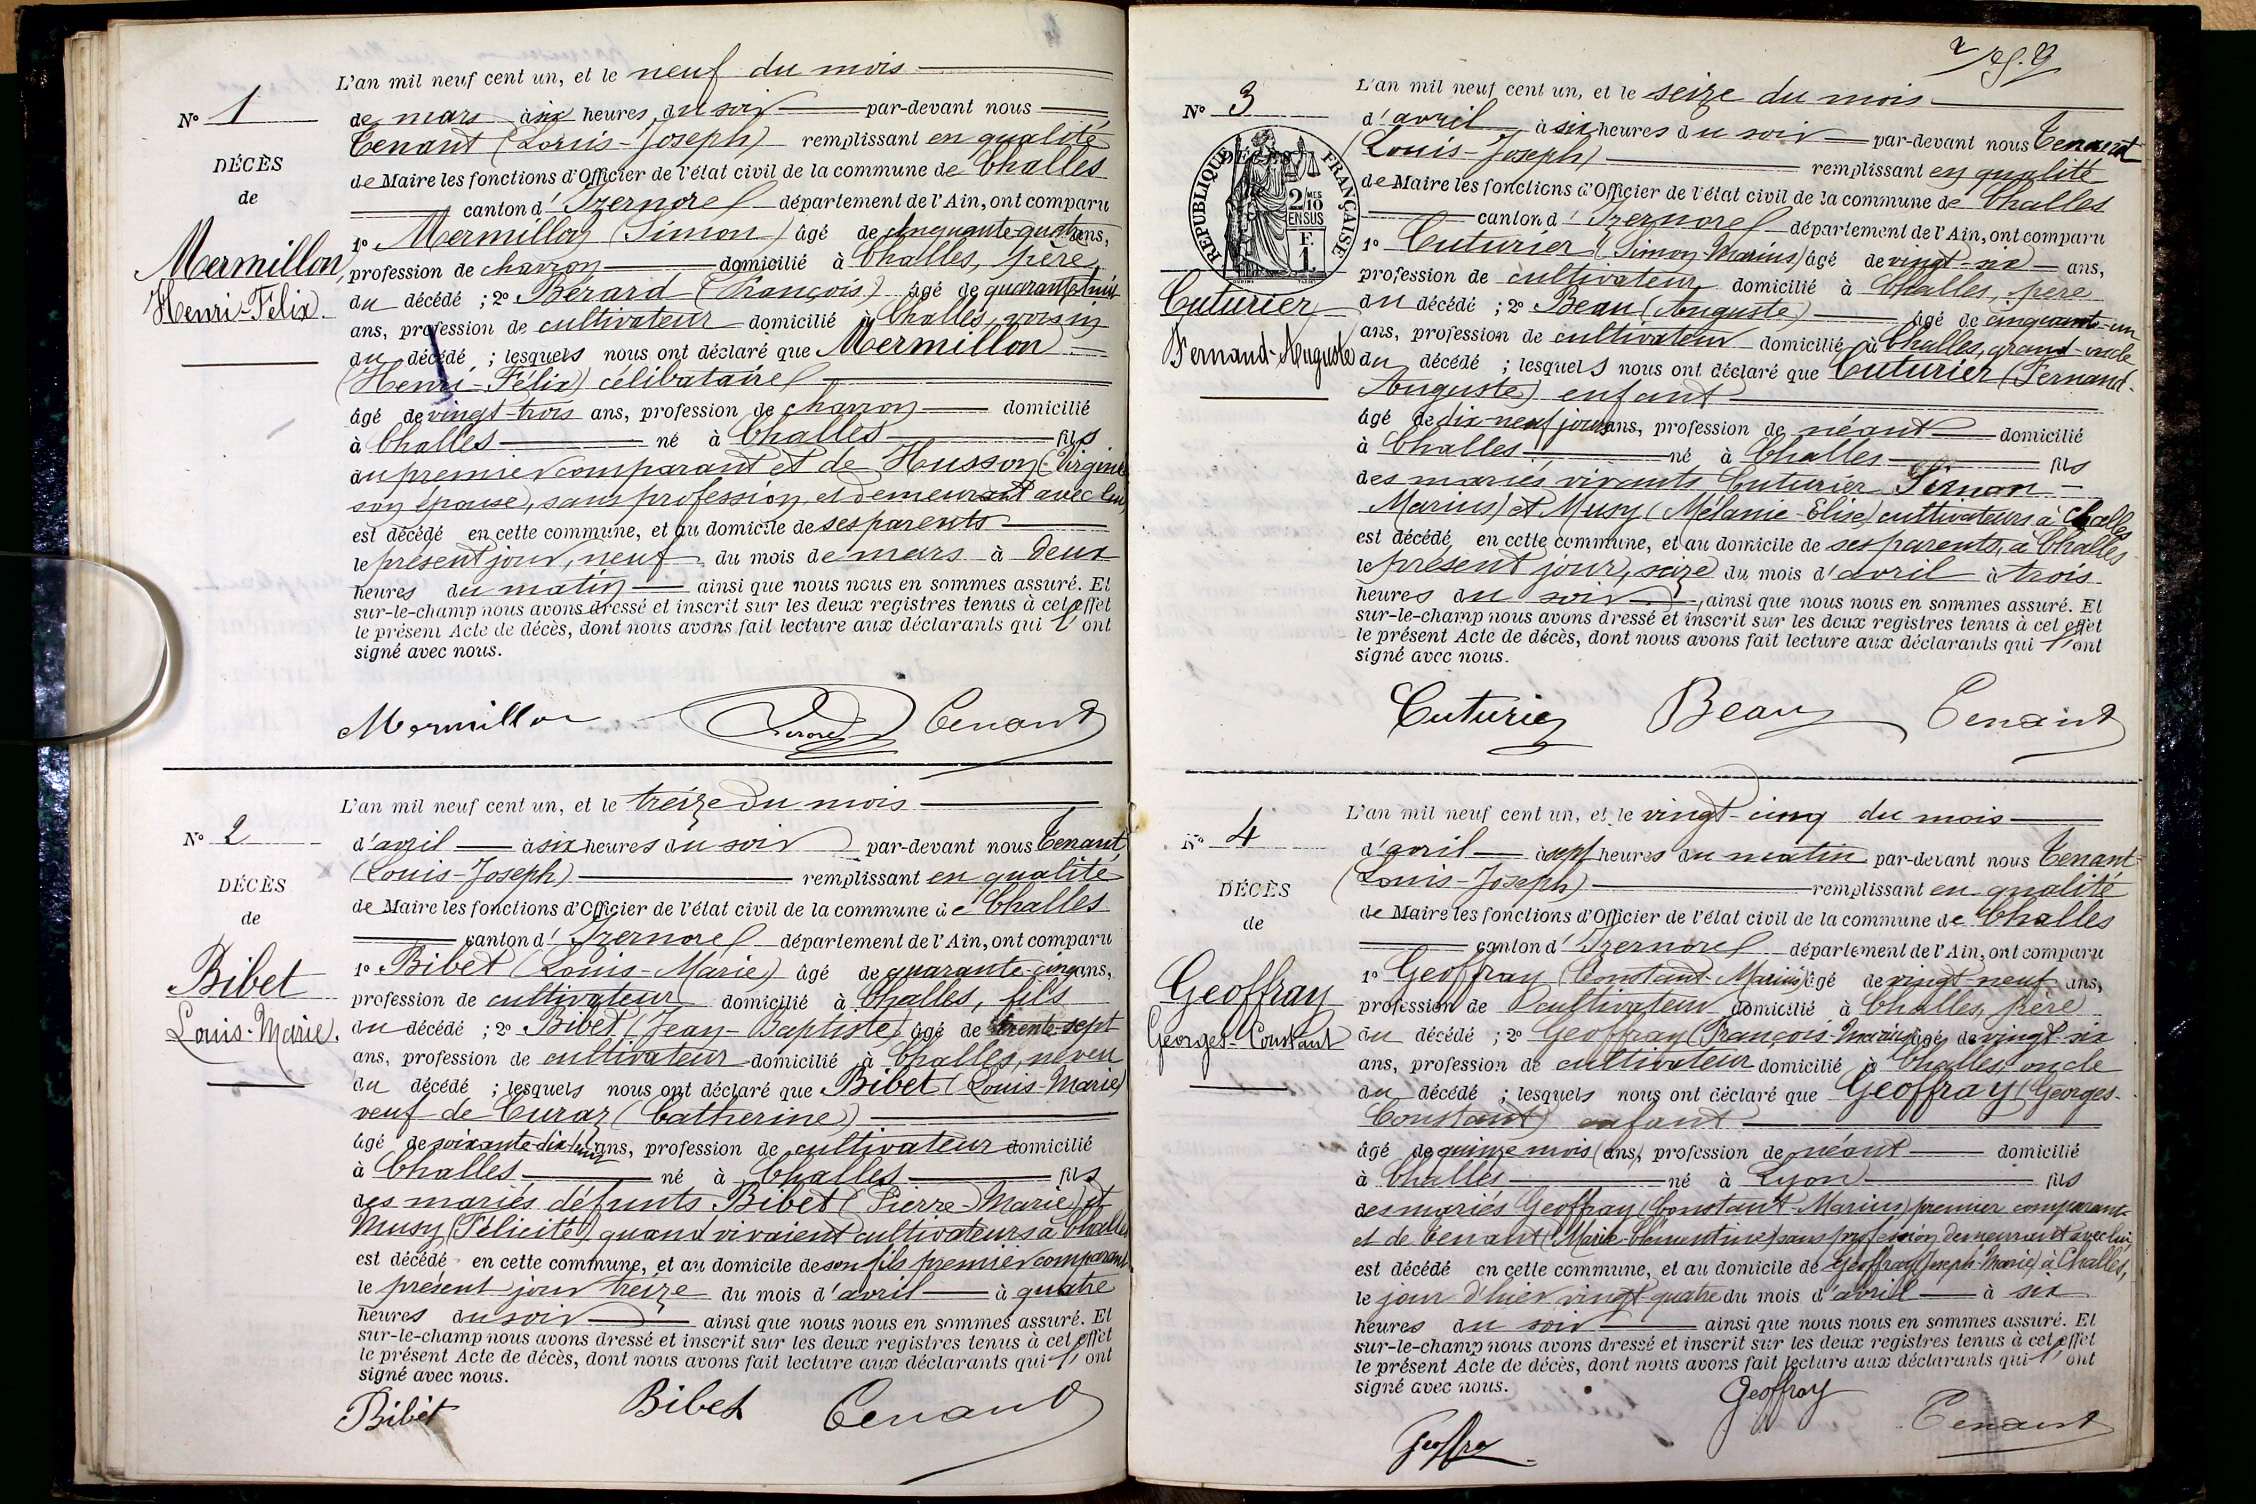 L'an mil neuf cent un, et le neuf du mois
N° 1
de mars à six heures du soir par-devant nous
Tenant (Louis-Joseph) remplissant en qualité
DÉCÈS
de Maire les fonctions d'Officier de l'état civil de la commune de Challes
de
canton d'Izernore département de l'Ain, ont comparu
Mermillon,
Henri-Félix.
1° Mermillon (Simon) âgé de cinquante-quatre ans,
profession de charron domicilié à Challes, père
du décédé ; 2° Berard (François) âgé de quarante-huit
ans, profession de cultivateur domicilié à Challes, voisin
du décédé ; lesquels nous ont déclaré que Mermillon
(Henri-Félix) célibataire
âgé de vingt-trois ans, profession de charron domicilié
à Challes né à Challes fils
du premier comparant et de Husson (Virginie
son épouse, sans profession et demeurant avec lui,
est décédé en cette commune, et au domicile de ses parents
le présent jour, neuf du mois de mars à deux
heures du matin ainsi que nous nous en sommes assuré. Et
sur-le-champ nous avons dressé et inscrit sur les deux registres tenus à cet effet
le présent Acte de décès, dont nous avons fait lecture aux déclarants qui l'ont
signé avec nous.
Mermillon Berard Tenant
L'an mil neuf cent un, et le treize du mois
N° 2
d'avril à six heures du soir par-devant nous Tenant
(Louis-Joseph) remplissant en qualité
DÉCÈS
de Maire les fonctions d'Officier de l'état civil de la commune de Challes
de
canton d'Izernore département de l'Ain, ont comparu
Bibet
Louis-Marie.
1° Bibet (Louis-Marie) âgé de quarante-cinq ans,
profession de cultivateur domicilié à Challes, fils
du décédé ; 2° Bibet (Jean-Baptiste) âgé de trente-sept
ans, profession de cultivateur domicilié à Challes, neveu
du décédé ; lesquels nous ont déclaré que Bibet (Louis-Marie)
veuf de Curar (Catherine)
âgé de soixante-dix-huit ans, profession de cultivateur domicilié
à Challes né à Challes fils
des mariés défunts Bibet (Pierre-Marie) et
Musy (Félicité) quand vivaient cultivateurs à Challes
est décédé en cette commune, et au domicile de son fils premier comparant
le présent jour treize du mois d'avril à quatre
heures du soir ainsi que nous nous en sommes assuré. Et
sur-le-champ nous avons dressé et inscrit sur les deux registres tenus à cet effet
le présent Acte de décès, dont nous avons fait lecture aux déclarants qui l'ont
signé avec nous.
Bibet Bibet Tenant
2
L'an mil neuf cent un, et le seize du mois
N° 3
d'avril à six heures du soir par-devant nous Tenant
(Louis-Joseph) remplissant en qualité
DÉCÈS
RÉPUBLIQUE FRANÇAISE
2/10 MES
EN SUS
F.
1.
de Maire les fonctions d'Officier de l'état civil de la commune de Challes
canton d'Izernore département de l'Ain, ont comparu
Cuturier
Fernand-Auguste
1° Cuturier (Simon-Marius) âgé de vingt-six ans,
profession de cultivateur domicilié à Challes, père
du décédé ; 2° Beau (Auguste) âgé de cinquante-un
ans, profession de cultivateur domicilié à Challes, grand-oncle
du décédé ; lesquels nous ont déclaré que Cuturier (Fernand-
Auguste) enfant
âgé de dix neuf jours ans, profession de néant domicilié
à Challes né à Challes fils
des mariés vivants Cuturier Simon-
Marius) et Musy (Mélanie-Elise) cultivateurs à Challes
est décédé en cette commune, et au domicile de ses parents, à Challes
le présent jour, seize du mois d'avril à trois
heures du soir, ainsi que nous nous en sommes assuré. Et
sur-le-champ nous avons dressé et inscrit sur les deux registres tenus à cet effet
le présent Acte de décès, dont nous avons fait lecture aux déclarants qui l'ont
signé avec nous.
Cuturier Beau Tenant
L'an mil neuf cent un, et le vingt-cinq du mois
N° 4
d'avril à sept heures du matin par-devant nous Tenant
(Louis-Joseph) remplissant en qualité
DÉCÈS
de Maire les fonctions d'Officier de l'état civil de la commune de Challes
de
canton d'Izernore département de l'Ain, ont comparu
Geoffray
Georges-Constant
1° Geoffray (Constant-Marius) âgé de vingt-neuf ans,
profession de cultivateur domicilié à Challes, père
du décédé ; 2° Geoffray (François-Marius) âgé de vingt-six
ans, profession de cultivateur domicilié à Challes, oncle
du décédé ; lesquels nous ont déclaré que Geoffray (Georges-
Constant) enfant
âgé de quinze mois (ans), profession de néant domicilié
à Challes né à Lyon fils
des mariés Geoffray (Constant-Marius) premier comparant
et de Tenant (Marie-Clémentine) sans profession demeurant avec lui,
est décédé en cette commune, et au domicile de Geoffray (Joseph-Marie) à Challes,
le jour d'hier vingt quatre du mois d'avril à six
heures du soir ainsi que nous nous en sommes assuré. Et
sur-le-champ nous avons dressé et inscrit sur les deux registres tenus à cet effet
le présent Acte de décès, dont nous avons fait lecture aux déclarants qui l'ont
signé avec nous.
Geoffray Geoffray Tenant